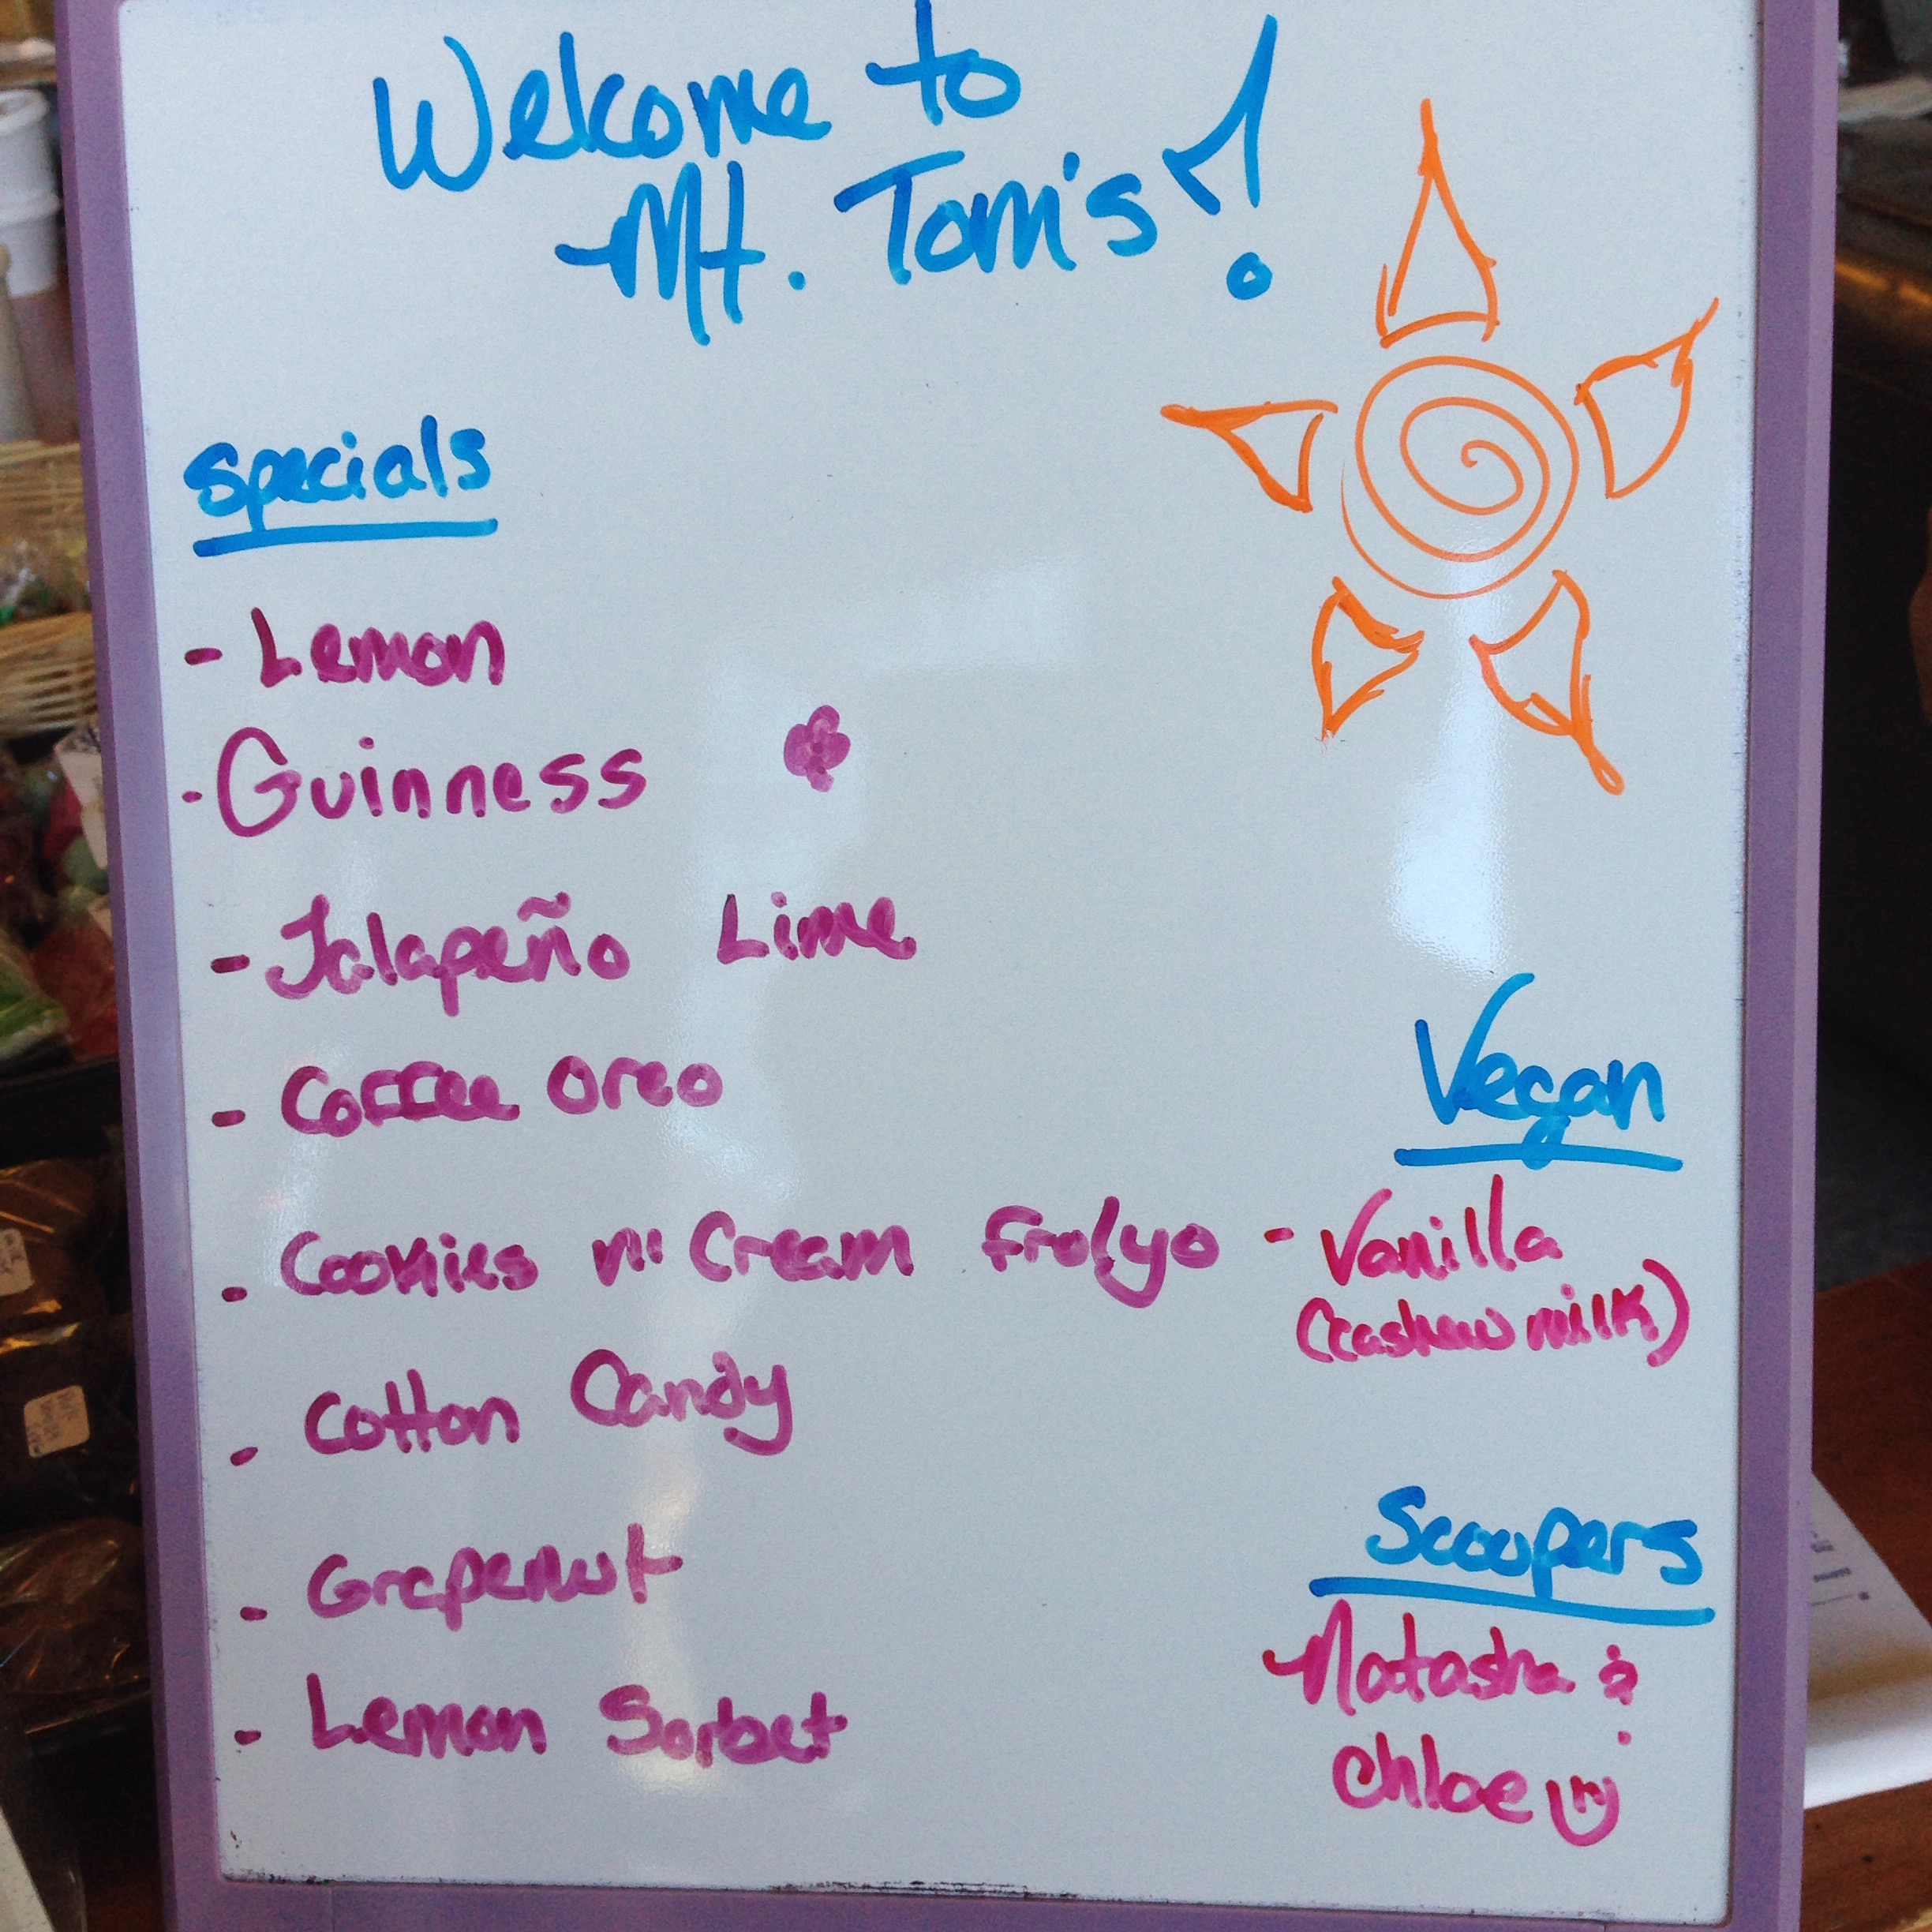 Welcome to
Mt. Tom's!
Specials
- Lemon
- Guinness
- Jalapeño Lime
- Coffee Oreo
- Cookies n' Cream Froyo
- Cotton Candy
- Grapenut
- Lemon Sorbet
Vegan
- Vanilla
(cashew milk)
Scoopers
Natasha &
Chloe